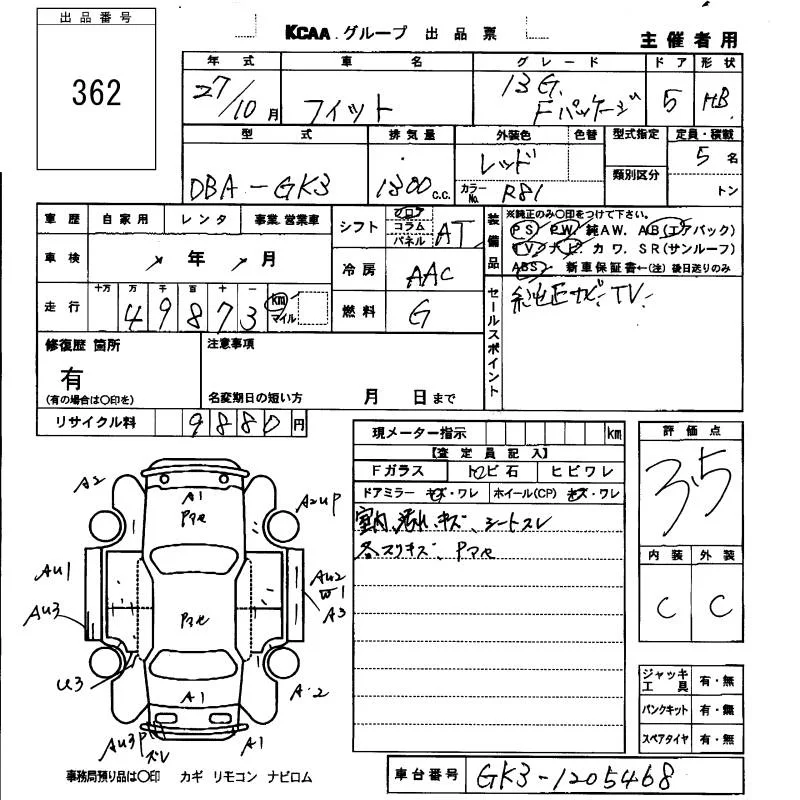 出品番号
362
KCAA グループ 出品票
主催者用
年式 車名 グレード ドア 形状
27/10月 フィット 13G. Fパッケージ 5 HB
型式 排気量 外装色 色替 型式指定 定員・積載
DBA-GK3 1300 c.c. レッド 類別区分 5名
カラーNo. R81 トン
車歴 自家用 レンタ 事業.営業車
シフト フロア コラム パネル AT
車検 年 月
冷房 AAC
走行 十万 万 千 百 十 一
49873 km マイル
燃料 G
装備品
※純正のみ〇印をつけて下さい。
PS PW. 純AW. AB(エアバック)
TV. ナビ. カワ. SR(サンルーフ)
ABS 新車保証書←(注)後日送りのみ
セールスポイント
純正ナビ・TV.
修復歴 箇所
有
(有の場合は〇印を)
注意事項
名変期日の短い方 月 日まで
リサイクル料 9880円
現メーター指示 km
【査定員記入】
Fガラス トビ石 ヒビワレ
ドアミラー キズ・ワレ ホイール(CP) キズ・ワレ
室内汚れ.キズ、シートスレ
各スリキズ、Pマセ
評価点
3.5
内装 外装
C C
ジャッキ工具 有・無
パンクキット 有・無
スペアタイヤ 有・無
A2
A1
Pマセ
A2UP
AU1
AU3
AU2
W1
A3
Pマセ
U3
A1
A・2
AU3P
ズレ
A1
事務局預り品は〇印 カギ リモコン ナビロム
車台番号 GK3-1205468